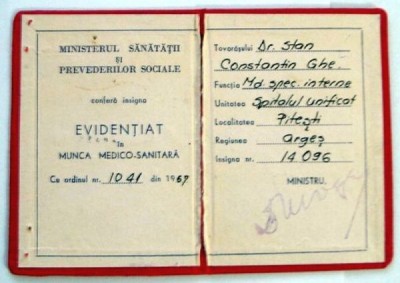 MINISTERUL SĂNĂTĂȚII
ȘI
PREVEDERILOR SOCIALE
conferă insigna
EVIDENȚIAT
în
MUNCA MEDICO-SANITARĂ
Cu ordinul nr. 1041 din 1967
Tovarășului Dr. Stan
Constantin Ghe.
Funcția Md. spec. interne
Unitatea Spitalul unificat
Localitatea Pitești
Regiunea Argeș
Insigna nr. 14.096
MINISTRU,